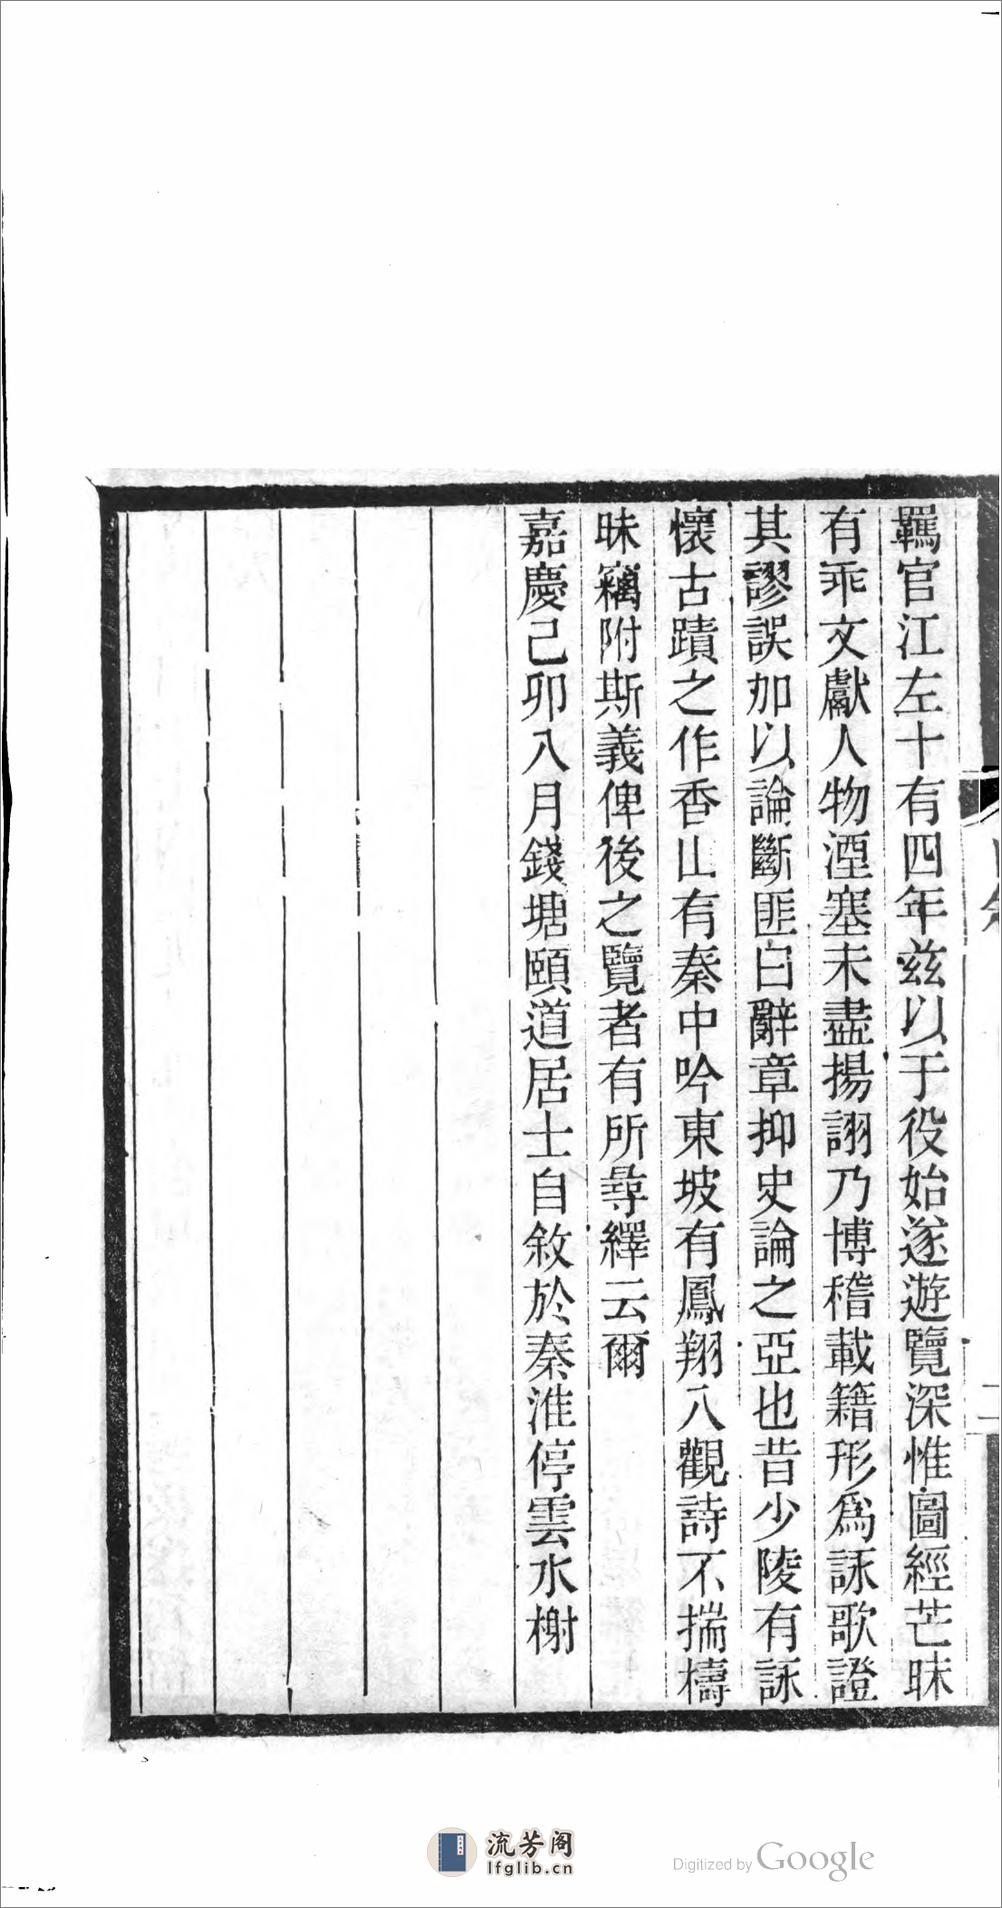 羈官江左十有四年茲以于役始遂遊覽深惟圖經芒昧
有乖文獻人物湮塞未盡揚詡乃博稽載籍形爲詠歌證
其謬誤加以論斷匪曰辭章抑史論之亞也昔少陵有詠
懷古蹟之作香山有秦中吟東坡有鳳翔八觀詩不揣檮
昧竊附斯義俾後之覽者有所尋繹云爾
嘉慶己卯八月錢塘頤道居士自敘於秦淮停雲水榭
二
流芳阁
lfglib.cn
Digitized by Google